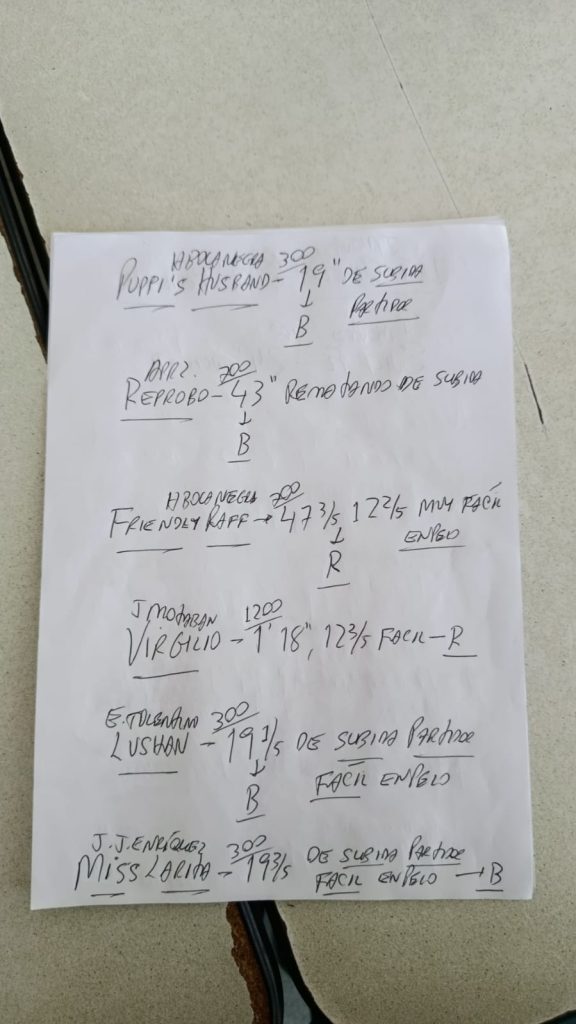 H BOCANEGRA 300
PUPPI'S HUSBAND - 19" DE SUBIDA
B PARTIDOR
APRZ. 700
REPROBO - 43" REMATANDO DE SUBIDA
B
H BOCANEGRA 700
FRIENDLY RAFF → 47 3/5 12 2/5 MUY FÁCIL
R EN PELO
J. MOTABAN 1200
VIRGILIO - 1' 18", 12 3/5 FACIL - R
E. TOLENTINO 300
LUSHAN - 19 1/5 DE SUBIDA PARTIDOR
B FACIL EN PELO
J. J. ENRÍQUEZ 300
MISS LARITA - 19 3/5 DE SUBIDA PARTIDOR
FACIL EN PELO → B